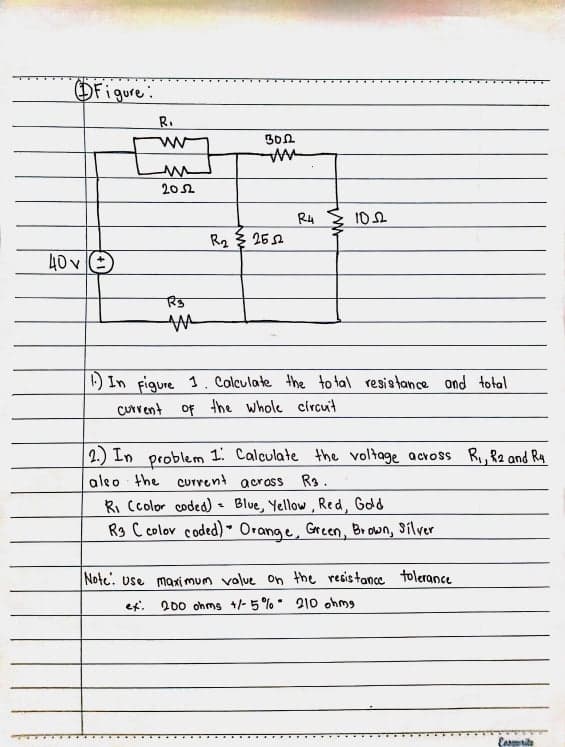 ① Figure:
R1
30Ω
20Ω
R4 10Ω
R2 25Ω
40v
R3
1.) In figure 1. Calculate the total resistance and total
current of the whole circuit
2.) In problem 1. Calculate the voltage across R1, R2 and R4
also the current across R3.
R1 (color coded) = Blue, Yellow, Red, Gold
R3 (color coded) = Orange, Green, Brown, Silver
Note: Use maximum value on the resistance tolerance
ex: 200 ohms +/- 5% = 210 ohms